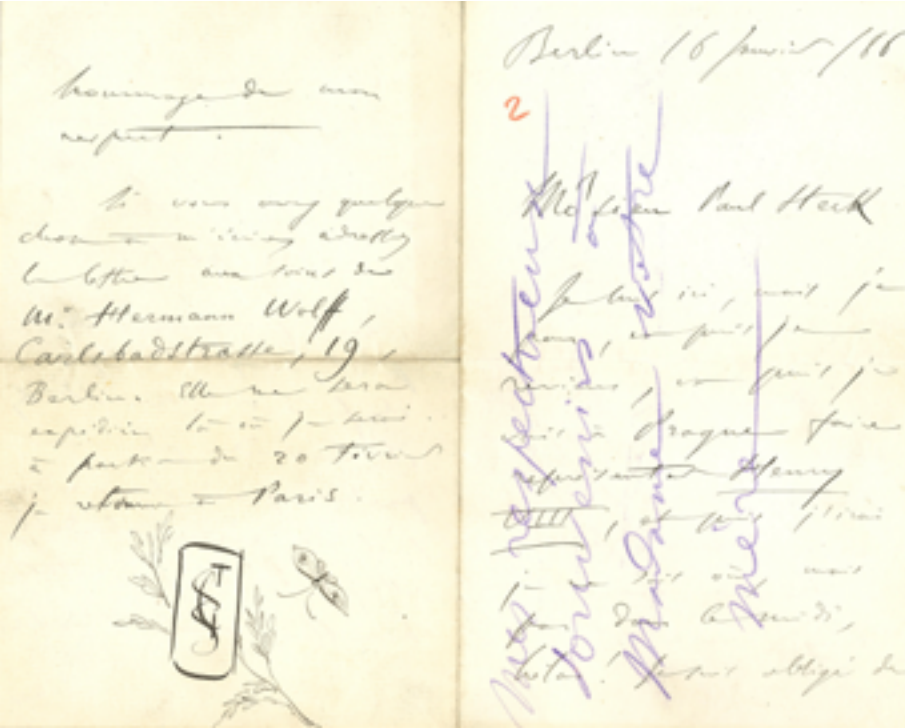 hommage de mon
respect.
Si vous avez quelque
chose à m'écrire, adressez
la lettre aux soins de
Mr Hermann Wolff,
Carlsbadstrasse, 19,
Berlin. Elle me sera
expédiée là où je serai.
à partir du 20 Février
je retourne à Paris.
Berlin 16 Janvier /86
2
Paul Steck
Je suis ici, mais j'
puis je
reviens, puis je
à Prague faire
représenter Henry
VIII, et puis j'irai
je ne sais où, mais
pas dans le midi,
hélas! Je suis obligé de
mes respectueux
souvenirs à
Madame votre
mère